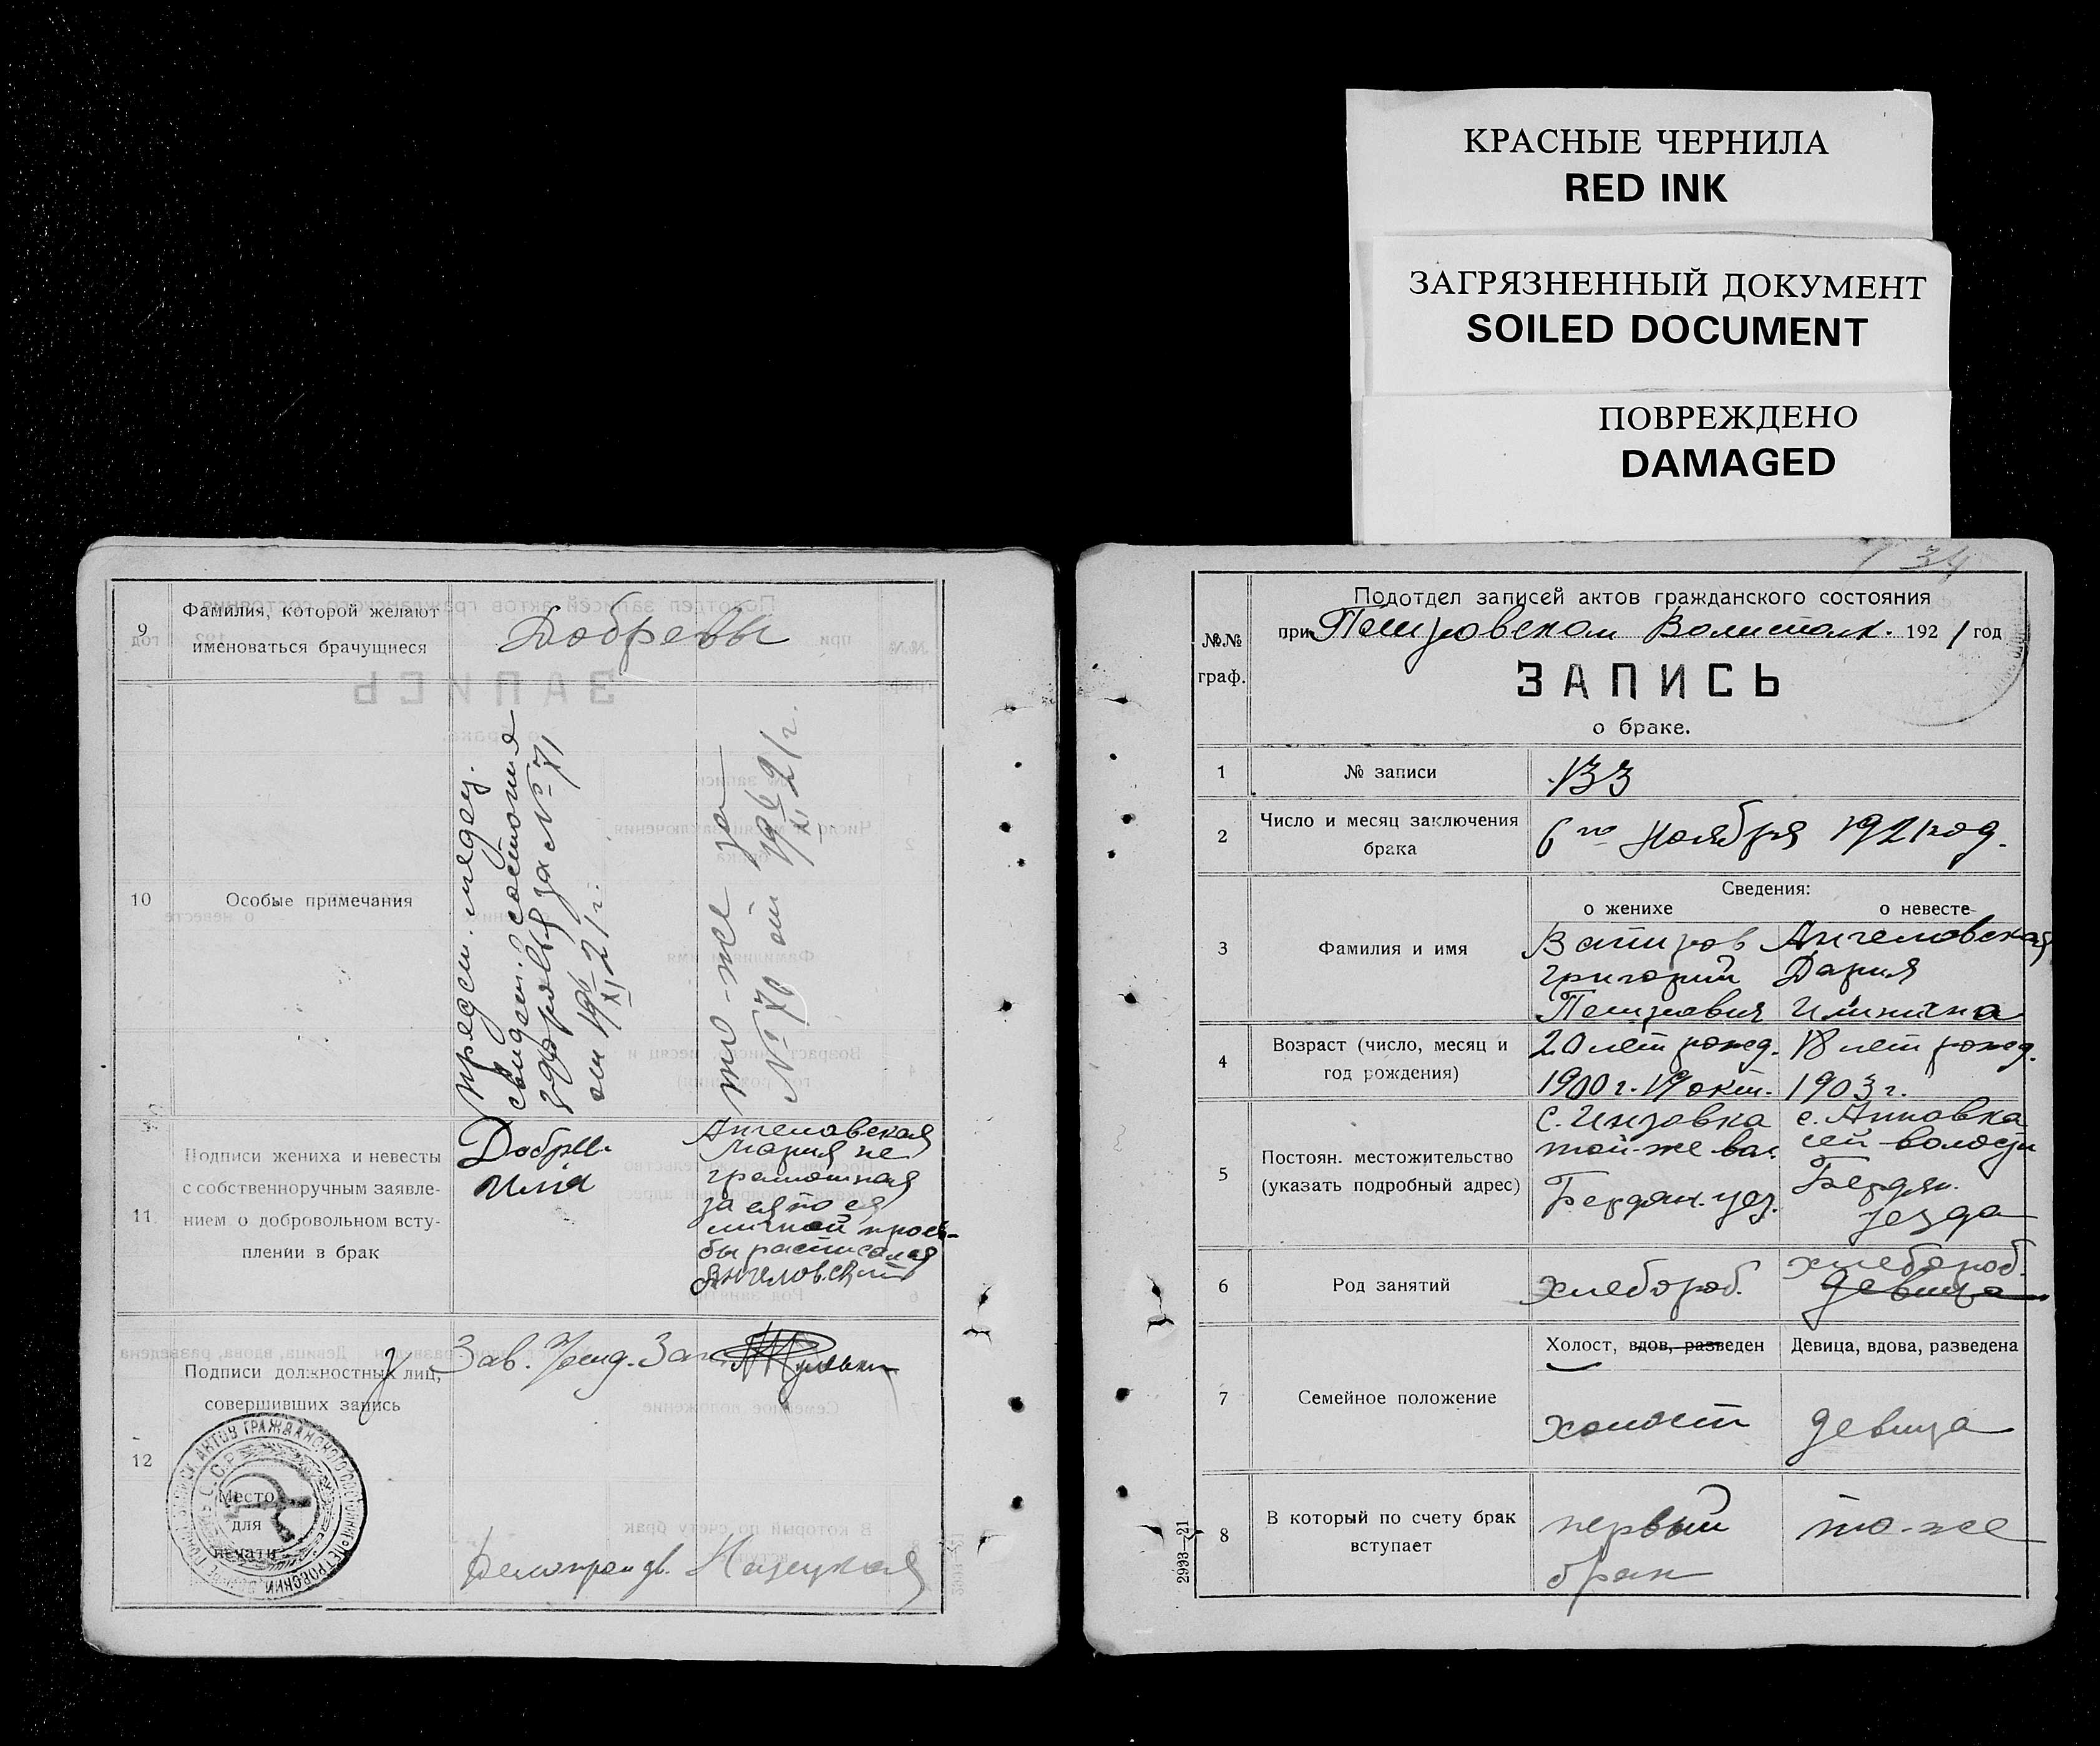 КРАСНЫЕ ЧЕРНИЛА
RED INK
ЗАГРЯЗНЕННЫЙ ДОКУМЕНТ
SOILED DOCUMENT
ПОВРЕЖДЕНО
DAMAGED
9
Фамилия, которой желают
именоваться брачущиеся
Добревы
10
Особые примечания
предст. медец.
свидет. состояния
здоровья за № 71
от 192 6/XI 21 г.
то-же за
№ 70 от 192 6/XI 21 г.
11
Подписи жениха и невесты
с собственноручным заявле-
нием о добровольном всту-
плении в брак
Добрев
Илия
Ангеловская
Мария не
грамотная
за ея по ея
личной прось-
бы расписался
Ангеловский
12
Подписи должностных лиц,
совершивших запись
Зав.
Место
для
печати
Делопроизв.
34
№№
граф.
Подотдел записей актов гражданского состояния
при Петровском Волисполк. 1921 год
ЗАПИСЬ
о браке.
1
№ записи
133
2
Число и месяц заключения
брака
6го Ноября 1921 год.
Сведения:
о женихе
о невесте
3
Фамилия и имя
Ватиров
Григорий
Петрович
Ангеловская
Дария
Илинична
4
Возраст (число, месяц и
год рождения)
20 лет рожд.
1900 г. 19 окт.
18 лет рожд.
1903 г.
5
Постоян. местожительство
(указать подробный адрес)
с. Инзовка
той-же вол.
Бердян. уез.
с. Анновка
сей волости
Бердян.
уезда
6
Род занятий
хлебороб.
хлебороб.
девица
7
Семейное положение
Холост, вдов, разведен
холост
Девица, вдова, разведена
девица
8
В который по счету брак
вступает
первый
брак
то-же
2993—21